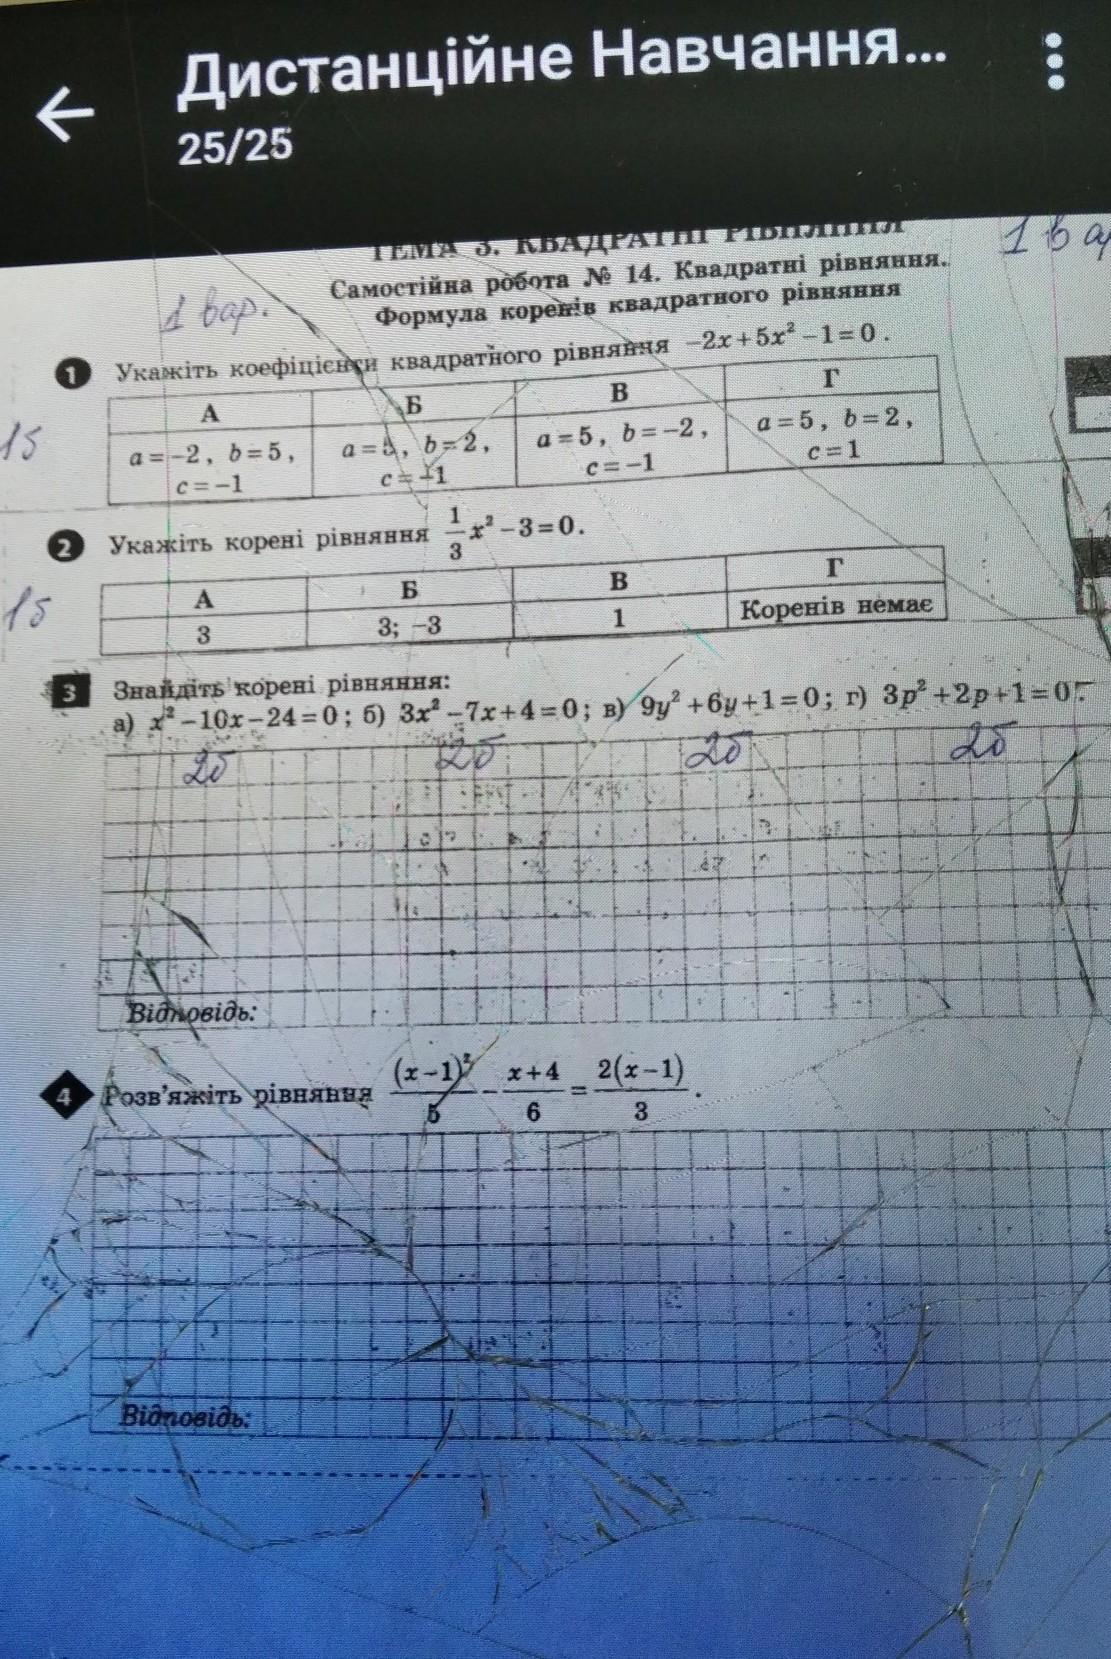 Дистанційне Навчання...
25/25
ТЕМА 3. КВАДРАТНІ РІВНЯННЯ
1 вар
Самостійна робота № 14. Квадратні рівняння.
Формула коренів квадратного рівняння
1 вар.
1 Укажіть коефіцієнти квадратного рівняння −2x+5x²−1=0.
А Б В Г
a=−2, b=5, c=−1
a=5, b=2, c=−1
a=5, b=−2, c=−1
a=5, b=2, c=1
1б
2 Укажіть корені рівняння 1/3 x²−3=0.
А Б В Г
3 3; −3 1 Коренів немає
1б
3 Знайдіть корені рівняння:
а) x²−10x−24=0; б) 3x²−7x+4=0; в) 9y²+6y+1=0; г) 3p²+2p+1=0.
2б 2б 2б 2б
Відповідь:
4 Розв'яжіть рівняння (x−1)²/5 − x+4/6 = 2(x−1)/3.
Відповідь: